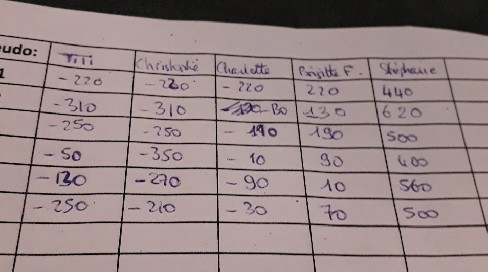 eudo: Titi Christophe Charlotte Brigitte F. Stéphane
1 -220 -220 -220 220 440
-310 -310 -130 130 620
-250 -250 -190 190 500
-50 -350 -10 90 400
-130 -270 -90 10 560
-250 -210 -30 70 500